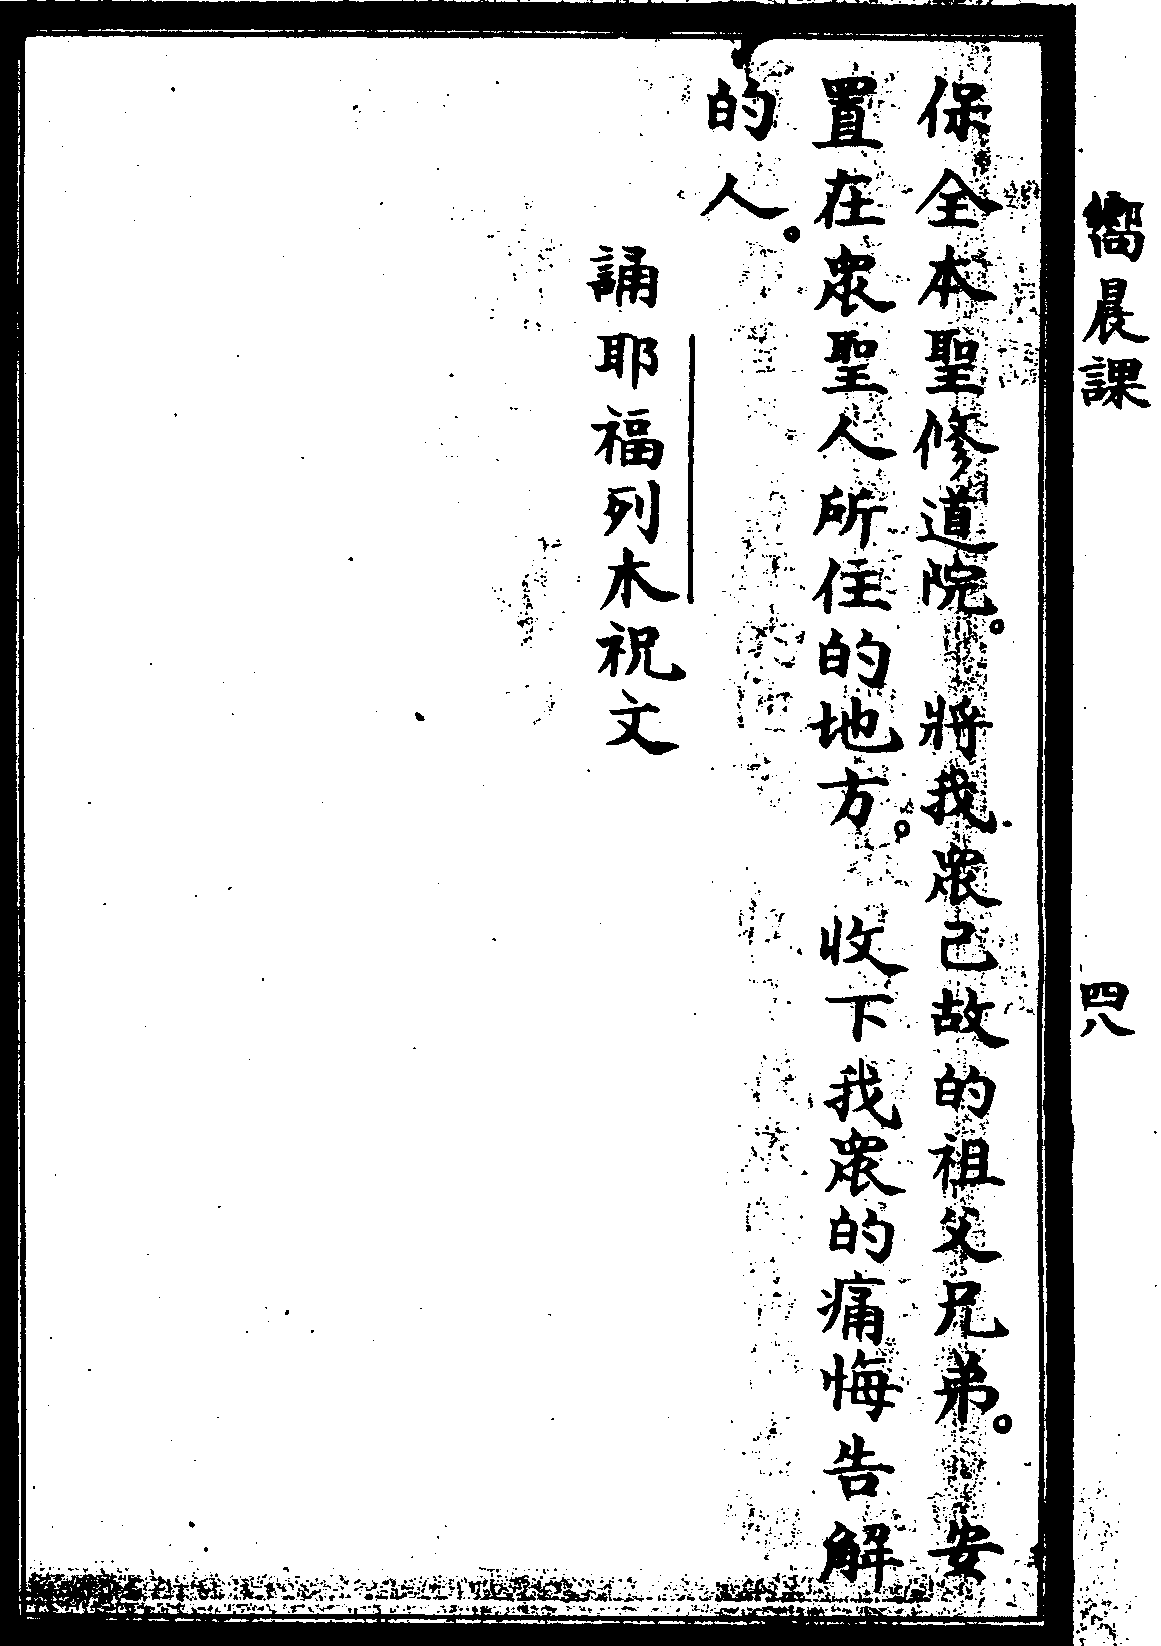 嚮晨課
四八
保全本聖修道院。將我眾已故的祖父兄弟。安
置在眾聖人所住的地方。收下我眾的痛悔告解
的人。
誦耶福列木祝文